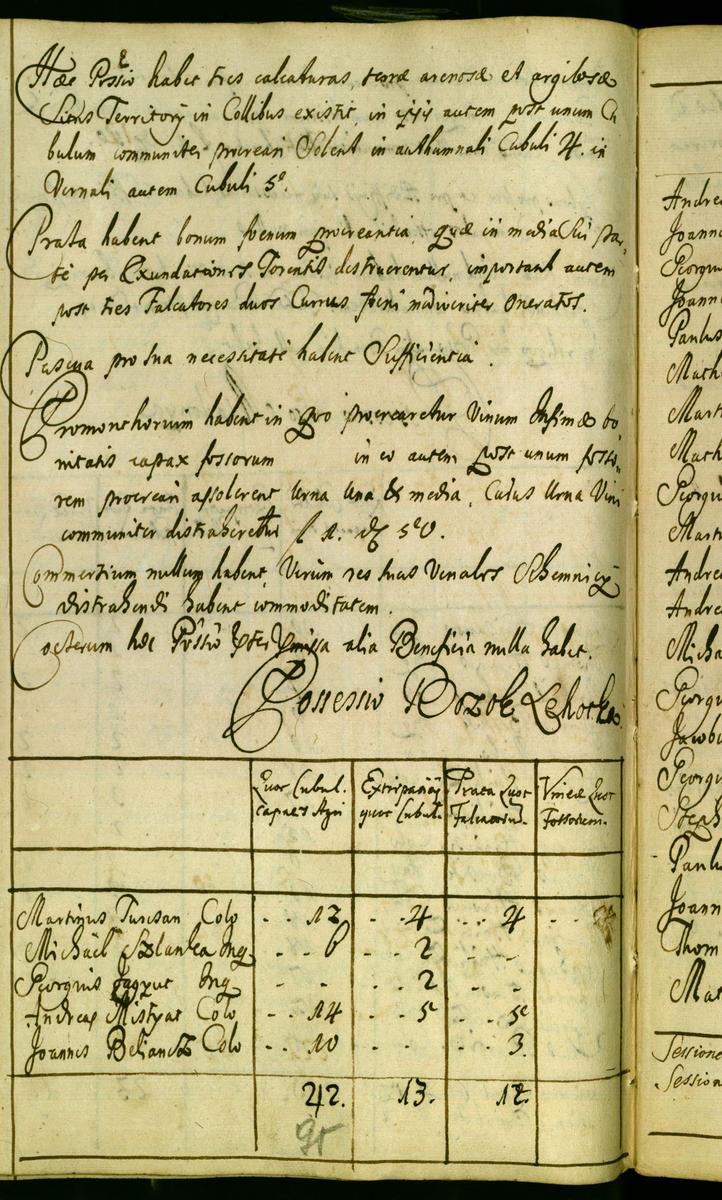 Hæc Possio habet tres calcaturas, terræ arenosæ et argilosæ
Situs Territory in Collibus existit, in ijs autem post unum Cu
bulum communiter procreari Solent in authumnali Cubuli 4. in
Vernali autem Cubuli 5.
Prata habent bonum foenum procreantia, quæ in media Sui par-
te per Exundationes Torentis destruerentur, important autem
post tres Falcatores duos Currus foeni mediocriter Oneratos.
Pascua pro sua necessitate habent Sufficientia.
Promonthorium habent in quo procrearetur Vinum Infimæ bo
nitatis capax fossorum in eo autem post unum fosso,
rem procreari assolerent Urna Una & media, Cuius Urna Vini
communiter distraheretur f 1. 50.
Commertium nullum habent, Verum res suas Venales Schemnicij
distrahendi habent commoditatem.
Coeterum hæc Possio præter præmissa alia Beneficia nulla habet.
Possessio Bozok Lehotka
Quot Cubul. Extirpationes Prata Quot Vineæ Quot
capaces Agri quot Cubul. Falcatorum. Fossorum.
Martinus Colo - - 12 - - 4 - - 4 - -
Michael Szlanka Inq - - 6 - - 2 - -
Georgius Inq - - - - 2 - -
Andreas Mistyar Colo - - 14 - - 5 - - 5
Joannes Beliancz Colo - - 10 - - - - 3
42. 13. 12.
Andrea
Joanne
Georgiu
Joanne
Paulus
Math
Mart
Math
Georgi
Marti
Andre
Andre
Micha
Georgi
Jacobu
Georgi
Steph
Paulu
Joann
Thom
Mat
Sessione
Session